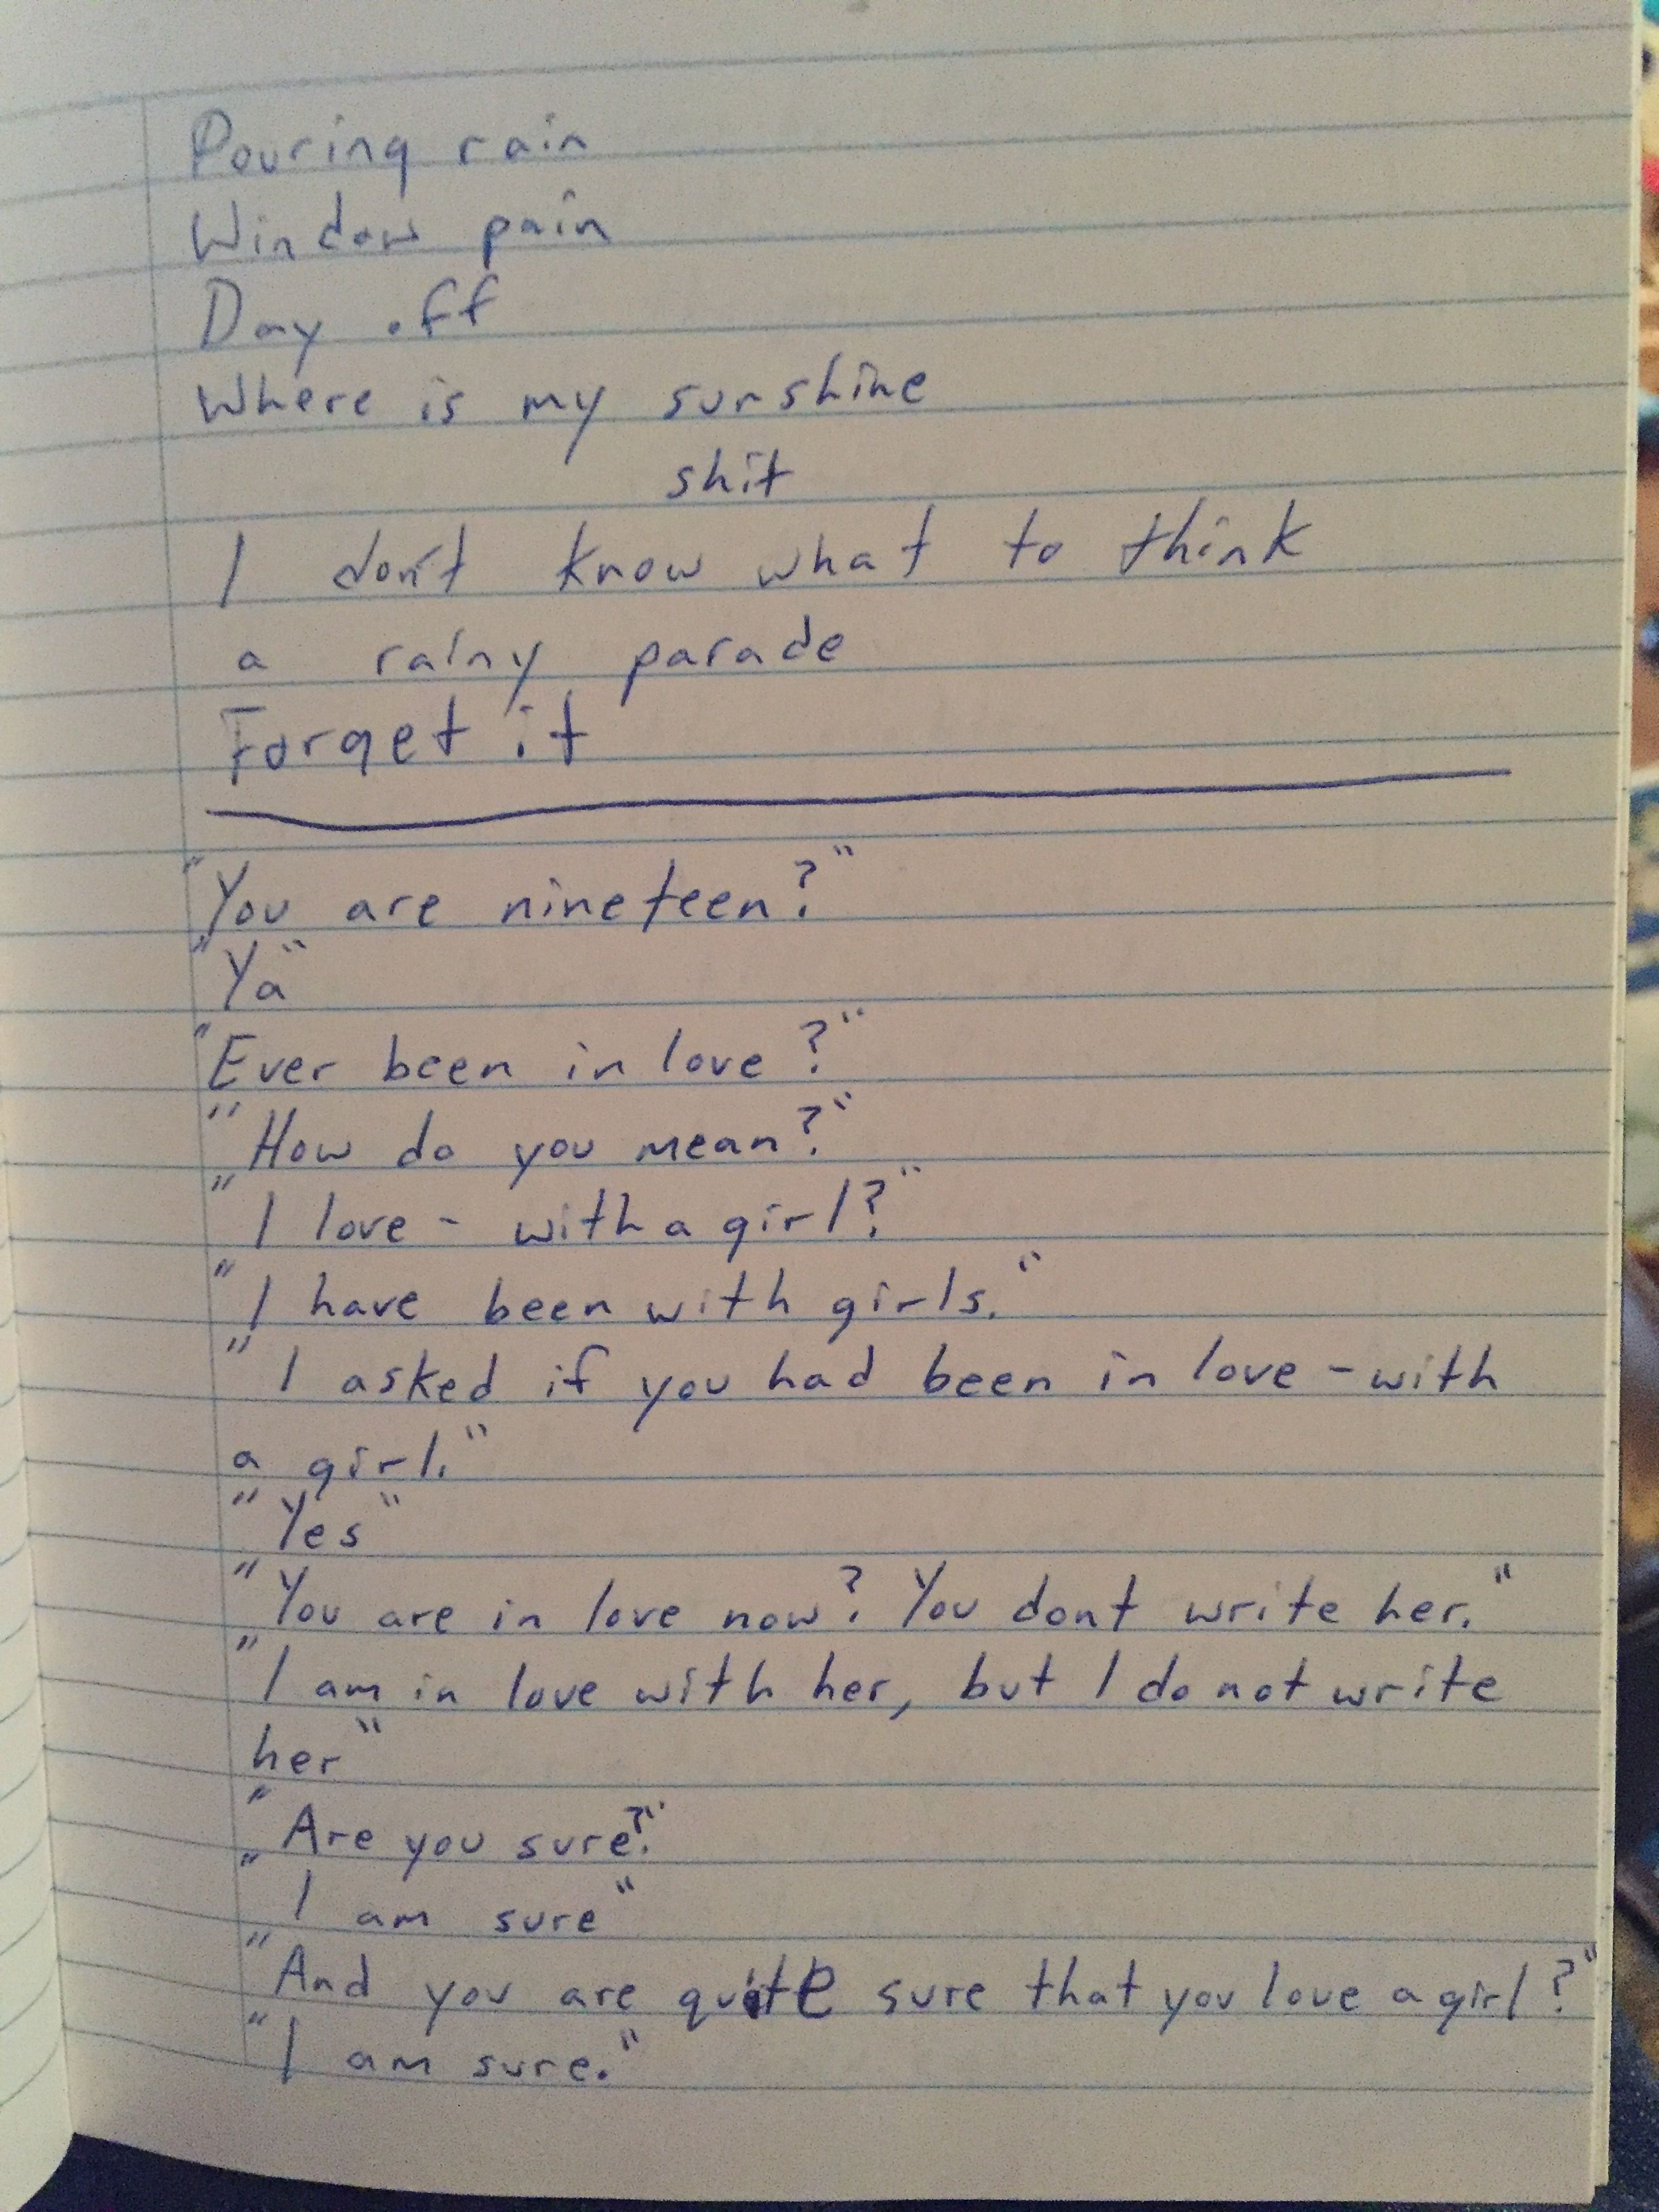 Pouring rain
Window pain
Day off
Where is my sunshine
shit
I don't know what to think
a rainy parade
Forget it
"You are nineteen?"
"Ya"
"Ever been in love?"
"How do you mean?"
"I love - with a girl?"
"I have been with girls."
"I asked if you had been in love - with
a girl."
"Yes"
"You are in love now? You dont write her."
"I am in love with her, but I do not write
her"
"Are you sure?"
"I am sure"
"And you are quite sure that you love a girl?"
"I am sure."